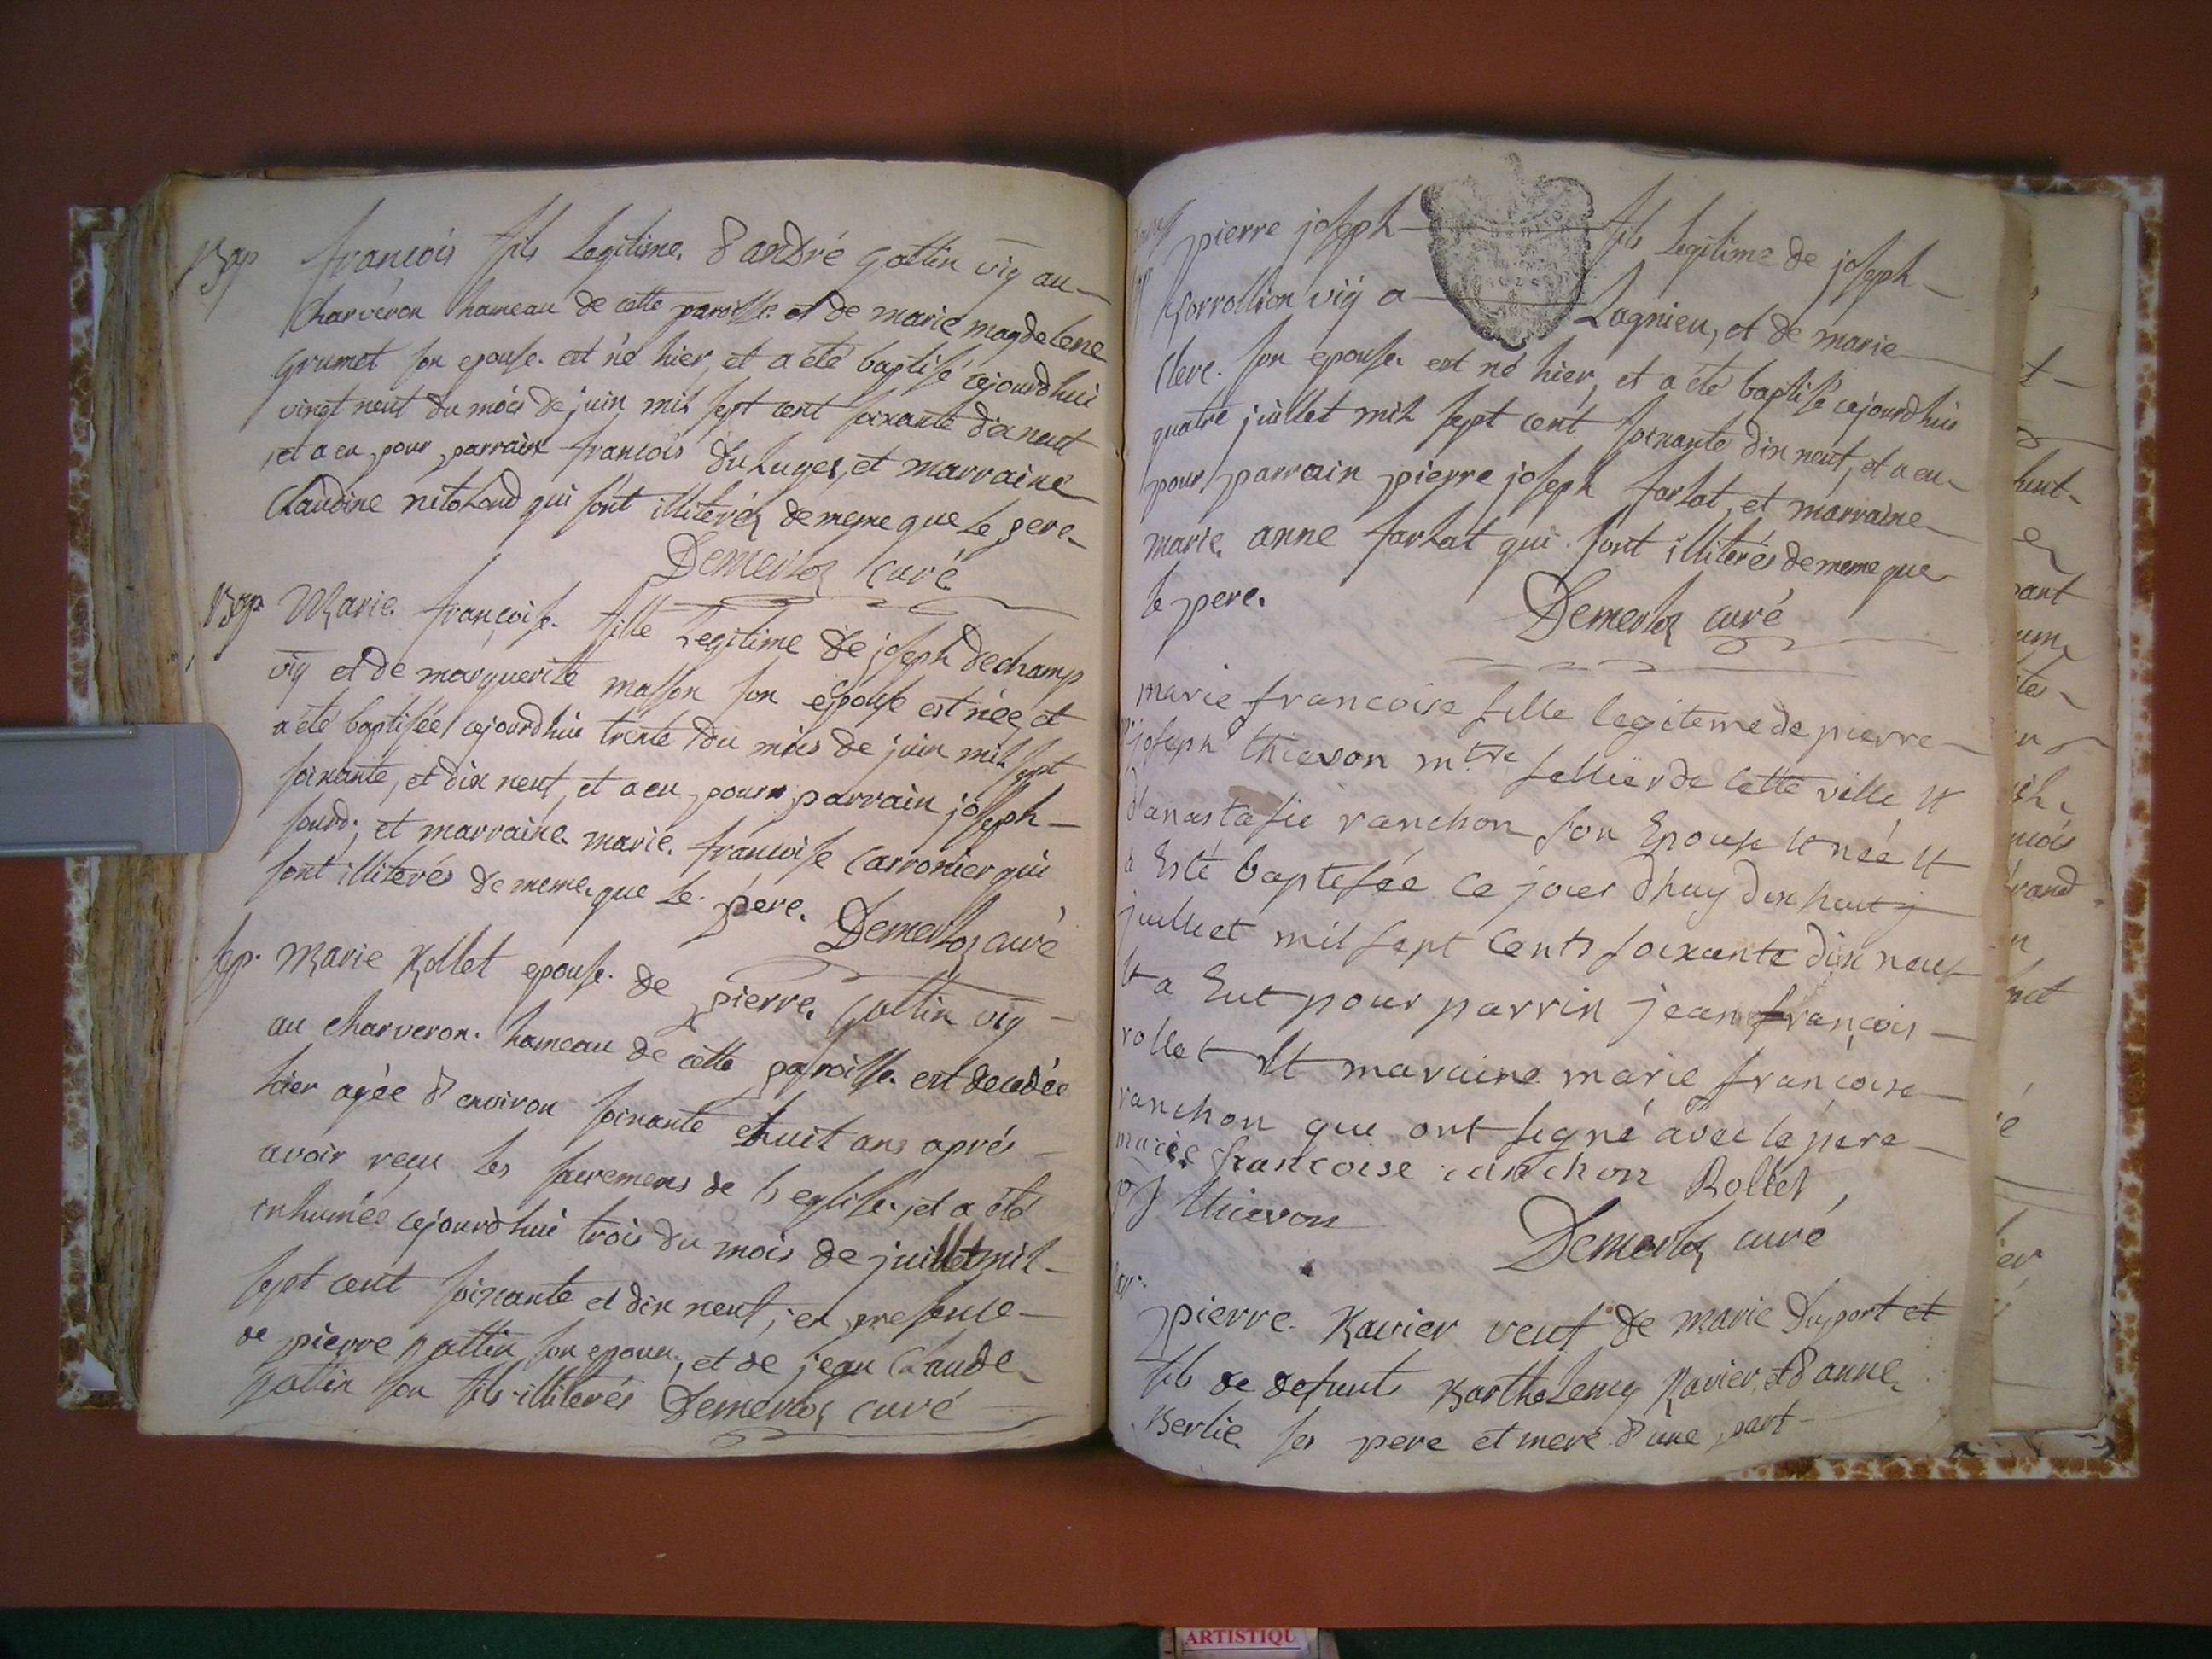 Bap françois fils Legitime d'andré gottin vig au
Charveron hameau de cette paroisse et de marie magdelene
grumet son epouse est né hier, et a été baptisé cejourdhui
vingt neuf du mois de juin mil sept cent soixante dix neuf
et a eu pour parrain francois duLuges, et marraine
Claudine qui sont illiterés de meme que le pere
Demerloz Curé
Bap Marie françoise fille Legitime de joseph dechamp
vig et de marguerite masson son epouse est née, et
a été baptisée cejourdhui trente du mois de juin mil sept
soixante, et dix neuf, et a eu pour parrain joseph
sourd, et marraine marie francoise Carronier qui
sont illiterés de meme que le pere. Demerloz curé
sep. Marie Rollet epouse de pierre gottin vig
au charveron hameau de cette paroisse est decedée
hier agée d'environ soixante et huit ans aprés
avoir reçu les sacremens de l'eglise, et a été
inhumée cejourdhui trois du mois de juillet mil
sept cent soixante et dix neuf, en presence
de pierre gottin son epoux, et de jean Claude
gottin son fils illiterés Demerloz curé
pierre joseph fils Legitime de joseph
Borrollion vig a Lagnieu, et de marie
Clerc son epouse est né hier, et a été baptisé cejourdhui
quatre juillet mil sept cent soixante dix neuf, et a eu
pour parrain pierre joseph farlat, et marraine
marie anne farlat qui sont illiterés de meme que
le pere.
Demerloz curé
marie francoise fille legiteme de pierre
joseph thievon mtre sellier de cette ville, et
d'anastasie ranchon son Epouse et née et
a Esté baptesée ce jour dhuy dix huit
juilliet mil sept Cents soixante dix neuf
et a Eut pour parrin jean françois
rollet Et maraine marie françoise
ranchon que ont segné avec le pere
marie francoise ranchon Rollet
pj thievon
Demerloz curé
pierre Ravier veuf de marie Duport et
fils de defunts BartheLemy Ravier, et d'anne
Berlie ses pere et mere d'une part
ARTISTIQU